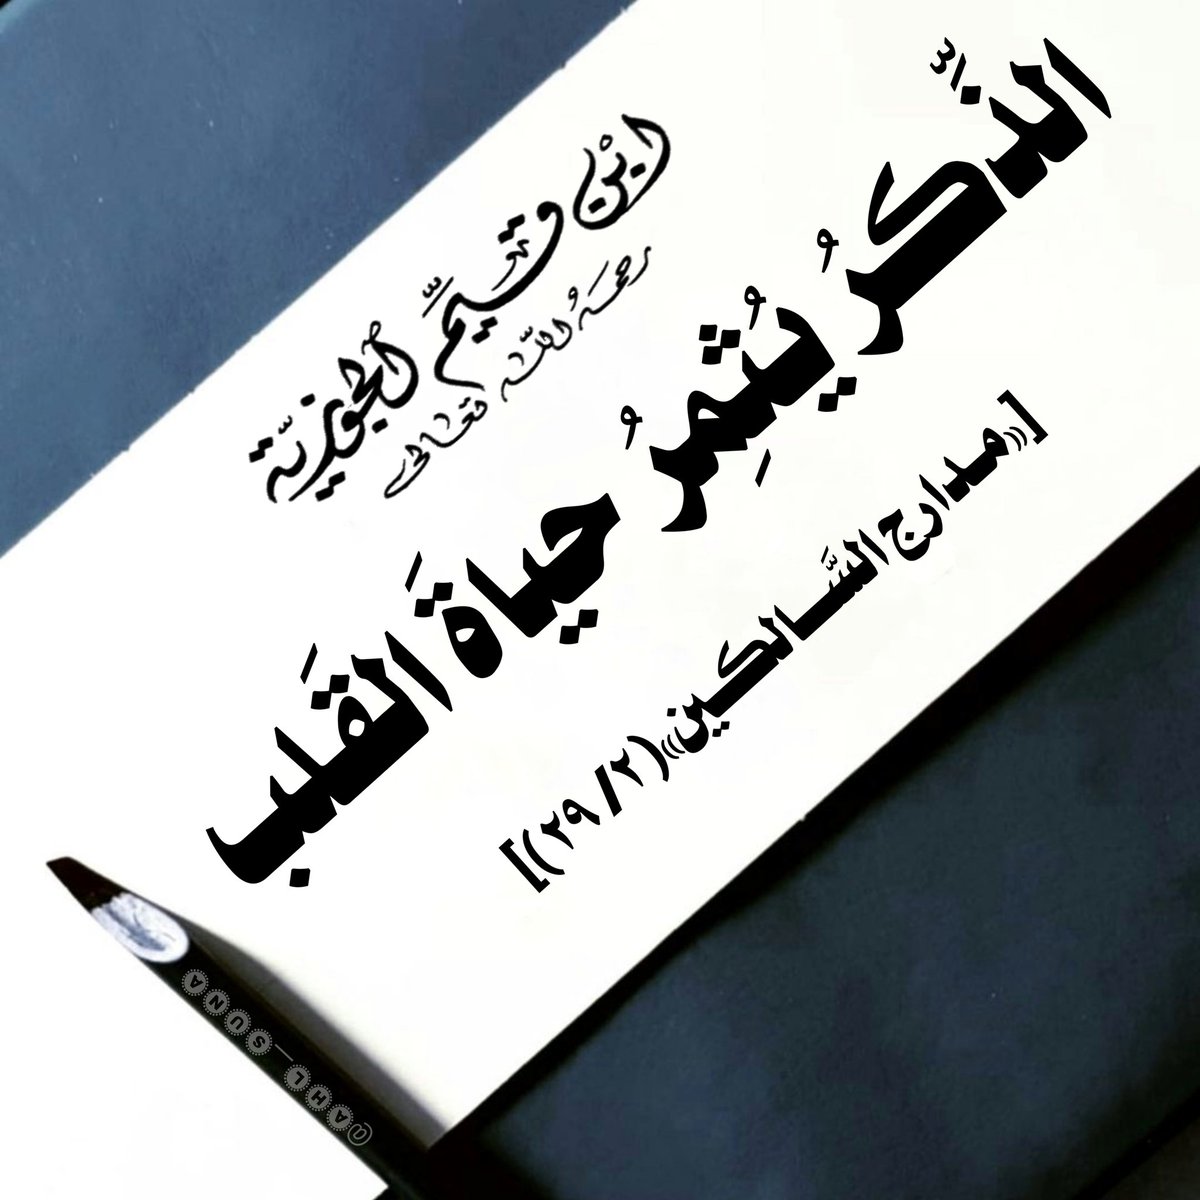 ابن قيّم الجوزيّة
رحمهُ اللّه تعالى
الذِّكرُ يُثمِرُ حياةَ القَلب
[((مدارج السَّالكين))(٢/ ٢٩)]
@AHL_SUNA